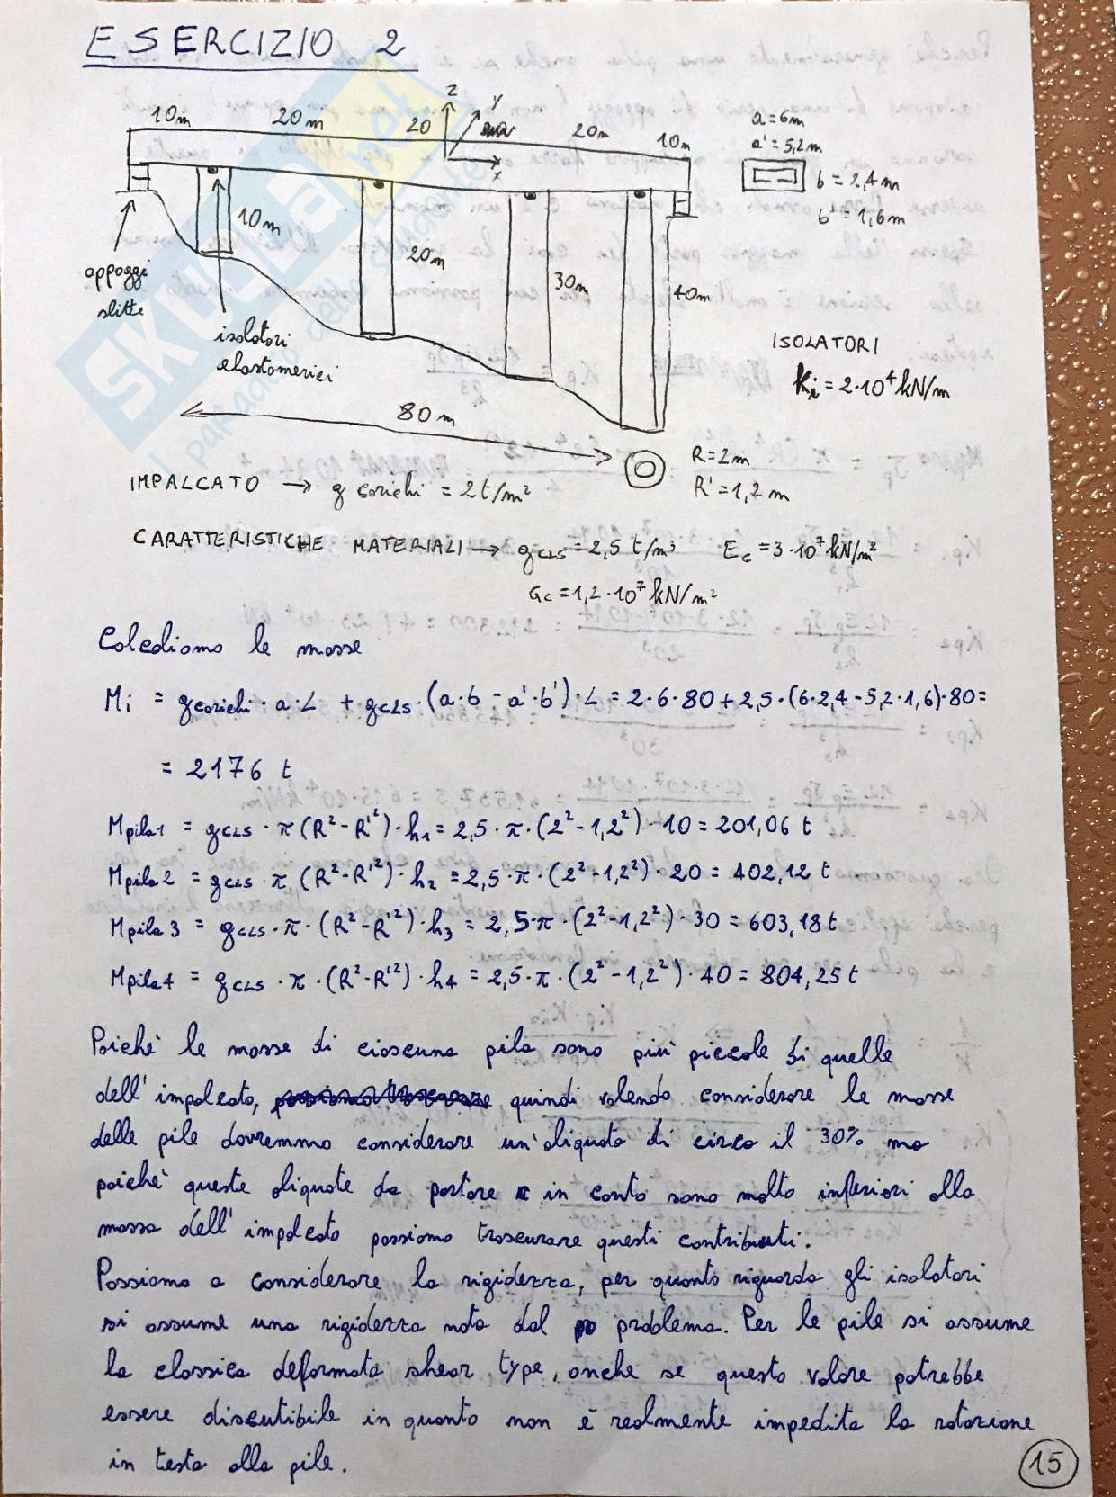 ESERCIZIO 2
10m 20m 20 20m 10m
z y x
a=6m
a'=5,2m
b=2,4m
b'=1,6m
10m 20m 30m 40m
appoggi
slitte
isolatori
elastomerici
ISOLATORI
Ki=2·10⁴kN/m
80m
R=2m
R'=1,2m
IMPALCATO → g carichi = 2t/m²
CARATTERISTICHE MATERIALI → gCLS=2,5 t/m³ Ec=3·10⁷kN/m²
Gc=1,2·10⁷kN/m²
SKUOLA.net
Colcoliamo le masse
Mi = gcarichi·a·L + gCLS·(a·b-a'·b')·L = 2·6·80+2,5·(6·2,4-5,2·1,6)·80=
= 2176 t
Mpila1 = gCLS·π(R²-R'²)·h1=2,5·π·(2²-1,2²)·10=201,06 t
Mpila2 = gCLS π(R²-R'²)·h2 =2,5·π·(2²-1,2²)·20=402,12 t
Mpila3 = gCLS·π·(R²-R'²)·h3=2,5·π·(2²-1,2²)·30=603,18t
Mpila4 = gCLS·π·(R²-R'²)·h4=2,5·π·(2²-1,2²)·40=804,25t
Poichè le masse di ciascuna pila sono più piccole di quelle
dell'impalcato, quindi volendo considerare le masse
delle pile dovremmo considerare un'aliquota di circa il 30% ma
poichè queste aliquote da portare in conto sono molto inferiori alla
massa dell'impalcato possiamo trascurare questi contributi.
Possiamo a considerare la rigidezza, per quanto riguarda gli isolatori
si assume una rigidezza nota dal problema. Per le pile si assume
la classica deformata shear type, anche se questo valore potrebbe
essere discutibile in quanto non è realmente impedita la rotazione
in testa alla pila.
15